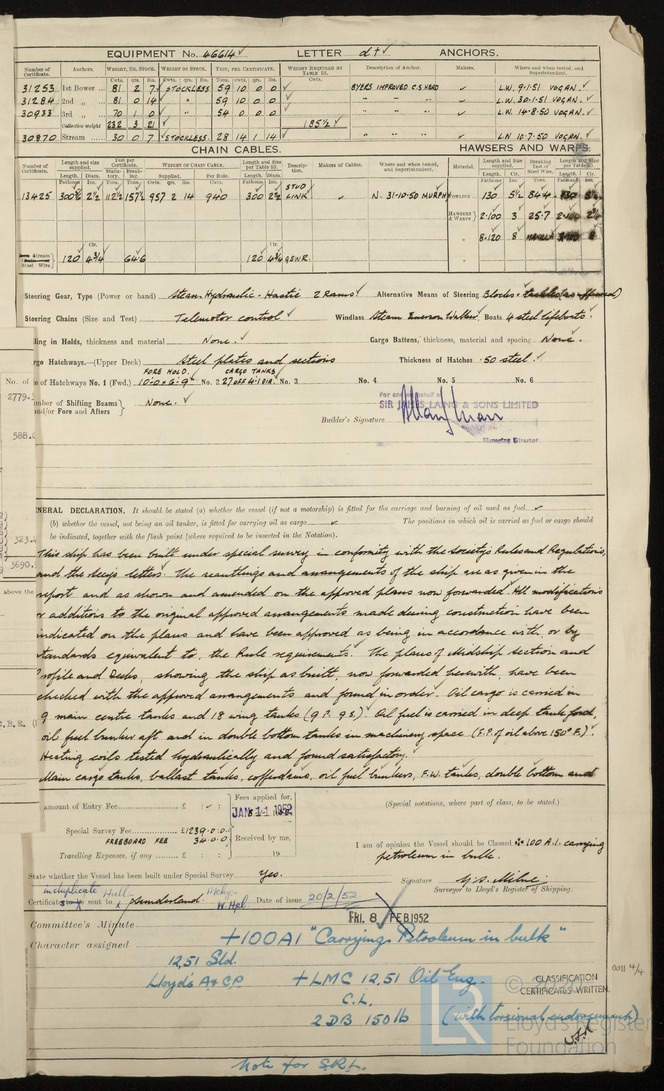 EQUIPMENT No. 46614 LETTER d† ANCHORS.
Number of Certificate. Anchors. WEIGHT, EX. STOCK. WEIGHT OF STOCK. TEST, PER CERTIFICATE. WEIGHT REQUIRED BY TABLE 53. Description of Anchor. Makers. Where and when tested, and Superintendent.
31253 1st Bower 81 2 7 STOCKLESS 59 10 0 0 BYERS IMPROVED C.S. HEAD L.W. 9.1.51 VOGAN.
31284 2nd „ 81 0 14 " 59 10 0 0 " " " L.W. 30.1.51 VOGAN.
30933 3rd „ 70 1 0 " 54 0 0 0 " " " L.W. 14.8.50 VOGAN.
Collective weight 232 3 21 185½
30870 Stream 30 0 7 STOCKLESS. 28 14 1 14 " " LN 10.7.50 VOGAN.
CHAIN CABLES. HAWSERS AND WARPS.
Number of Certificate. Length and size supplied. Test per Certificate. WEIGHT OF CHAIN CABLE. Length and Size per Table 53. Description. Makers of Cables. Where and when tested, and Superintendent. Material. Length and Size supplied. Breaking Test of Steel Wire. Length and Size per Table 53.
13425 300½ 2½ 112½ 157½ 957 2 14 940 300 2½ STUD LINK N. 31-10-50 MURPHY TOWLINE 130 5½ 84.4
HAWSERS & WARPS 2.100 3 25.7
" 8.120 8 MANILLA
Stream Steel Wire 120 4¾ 64.6 120 4¾ G.S.W.R.
Steering Gear, Type (Power or hand) Steam Hydraulic - Hastie 2 Rams Alternative Means of Steering Blocks & tackles (as approved)
Steering Chains (Size and Test) Telemotor control Windlass Steam Emerson Walker Boats 4 steel lifeboats.
ling in Holds, thickness and material None. Cargo Battens, thickness, material and spacing None.
rgo Hatchways.—(Upper Deck) Steel plates and sections Thickness of Hatches .50 steel.
FORE HOLD. CARGO TANKS
of Hatchways No. 1 (Fwd.) 10'.0" x 6'.9" No. 2 27 OFF 4'.1 DIA. No. 3 No. 4 No. 5 No. 6
mber of Shifting Beams and/or Fore and Afters None.
For and on behalf of
SIR JAMES LAING & SONS LIMITED
Builder's Signature
Managing Director
ENERAL DECLARATION. It should be stated (a) whether the vessel (if not a motorship) is fitted for the carriage and burning of oil used as fuel
(b) whether the vessel, not being an oil tanker, is fitted for carrying oil as cargo The positions in which oil is carried as fuel or cargo should
be indicated, together with the flash point (where required to be inserted in the Notation).
This ship has been built under special survey in conformity with the Society's Rules and Regulations,
and the Secys letters. The scantlings and arrangements of the ship are as given in the
report and as shown and amended on the approved plans now forwarded. All modifications
or additions to the original approved arrangements made during construction have been
indicated on the plans and have been approved as being in accordance with, or by
standards equivalent to, the Rule requirements. The plans of Midship Section and
Profile and Decks, showing the ship as built, now forwarded herewith, have been
checked with the approved arrangements and found in order. Oil cargo is carried in
9 main centre tanks and 18 wing tanks (9 P. 9 S.). Oil fuel is carried in deep tank ford,
oil fuel bunker aft and in double bottom tanks in machinery space (F.P. of oil above 150°F.)
Heating coils tested hydraulically and found satisfactory.
Main cargo tanks, ballast tanks, cofferdams, oil fuel bunkers, F.W. tanks, double bottom and
amount of Entry Fee £ : : Fees applied for, (Special notations, where part of class, to be stated.)
JAN 11 1952
Special Survey Fee £1239.0.0
FREEBOARD FEE 34.0.0 Received by me,
Travelling Expenses, if any £ : : 19
I am of opinion the Vessel should be Classed ✠100.A.1. carrying
petroleum in bulk.
State whether the Vessel has been built under Special Survey Yes.
Signature
Surveyor to Lloyd's Register of Shipping.
in duplicate Hull Mchy
Certificate to be sent to Sunderland W.Hpl Date of issue 20/2/52
FRI. 8 FEB 1952
Committee's Minute
Character assigned +100A1 "Carrying Petroleum in bulk"
12,51 Sld.
Lloyd's A&CP. +LMC 12,51 Oil Eng.
C.L.
2DB 150 lb (with torsional endorsement)
CLASSIFICATION
CERTIFICATES WRITTEN.
0011 4/4
Note for S.R.L.
No. of
2779.
588.
323.
3690.
above the
C.B.K.
LR
© 2020
Lloyd's Register
Foundation